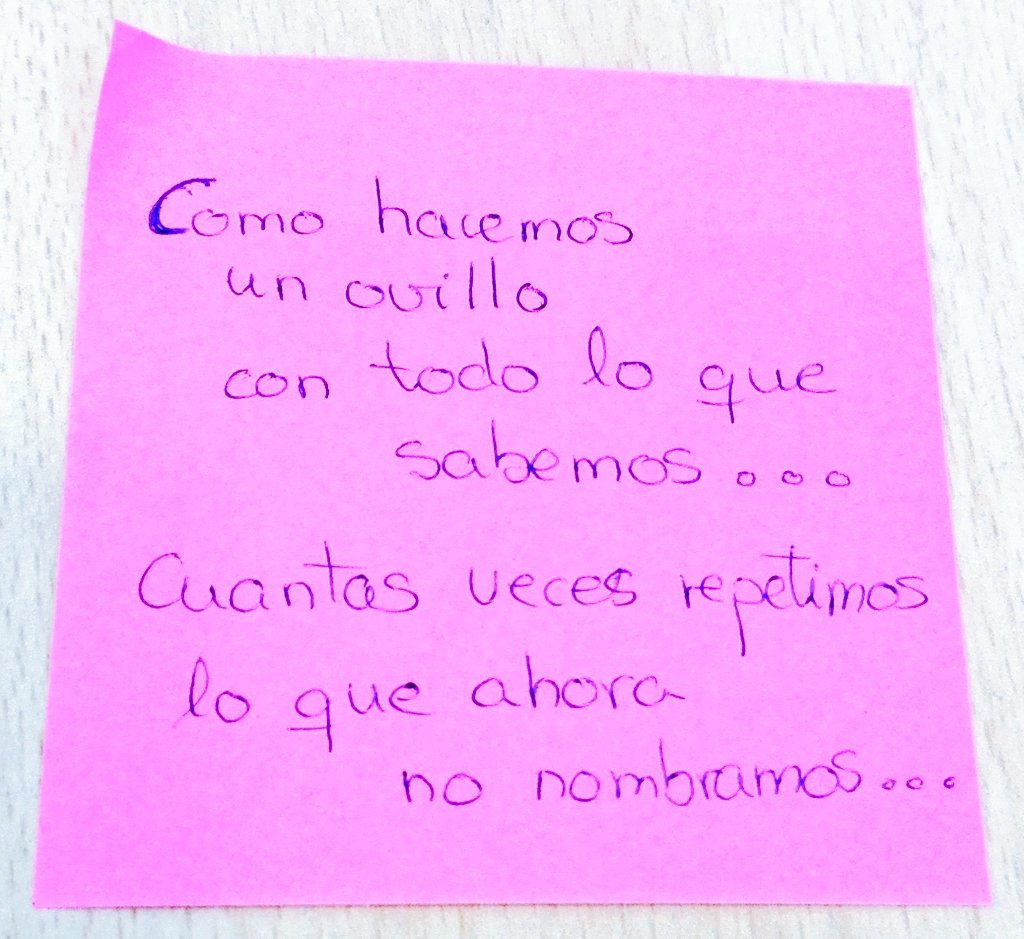 Como hacemos
un ovillo
con todo lo que
sabemos...
Cuantas veces repetimos
lo que ahora
no nombramos...